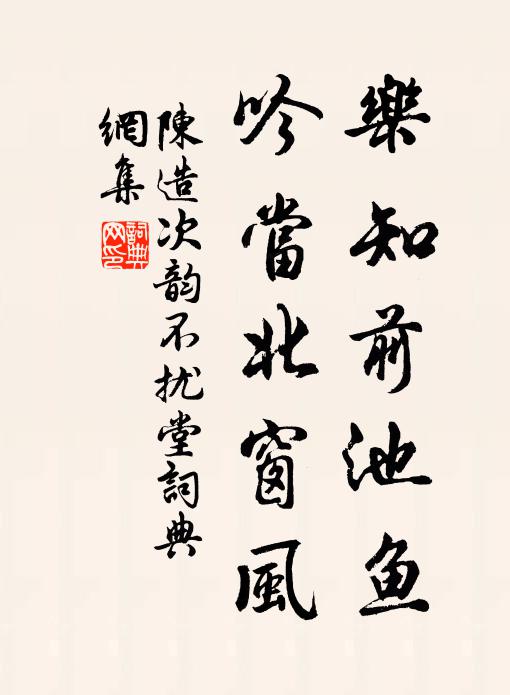 樂知前池鱼
吟當北窗風
陳造次韵不扰堂詞典
網集
詞典
网印